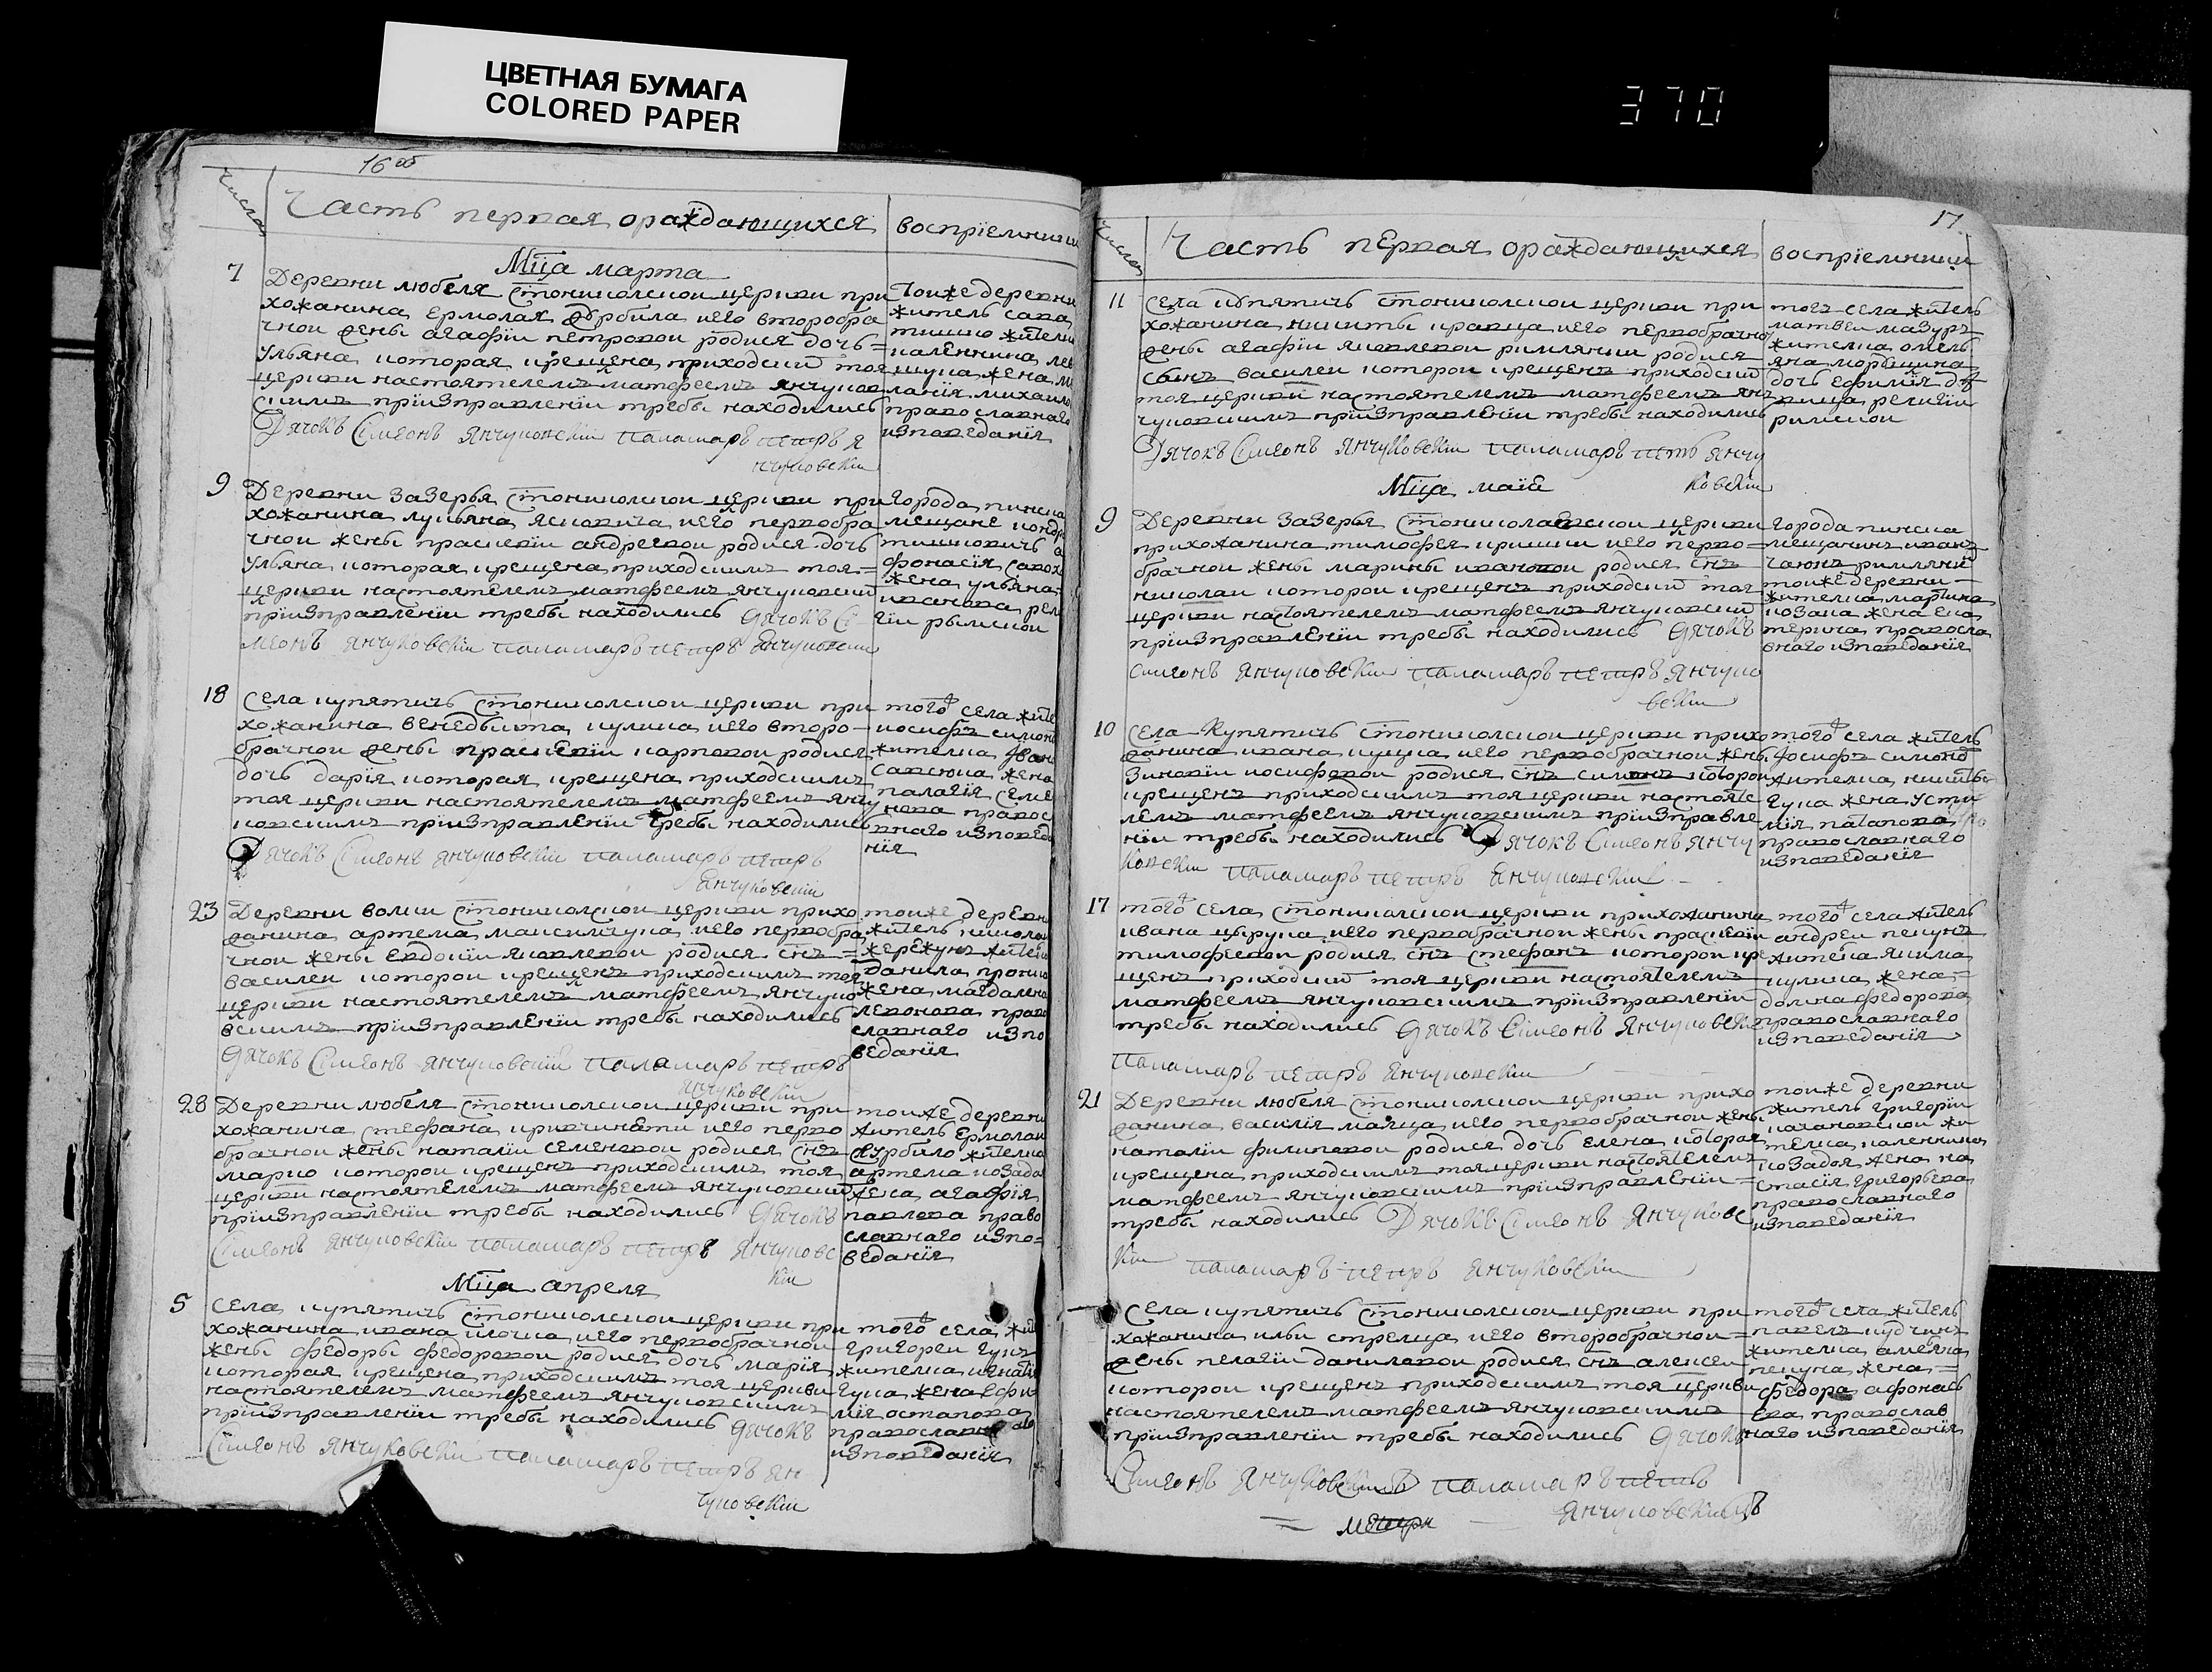 ЦВЕТНАЯ БУМАГА
COLORED PAPER
370
16 об
Числа
Часть первая ораждающихся
воспрїемники
Мца марта
7
Деревни любеля стониколской церкви при
хожанина ермолая скурбила иего второбра
чной жены агафїи петровой родися дочь=
Ульяна которая крещена приходскій тоя
церкви настоятелемъ матфеемъ янчуков
скимъ приизправленїи требы находились
Дячокъ Сімеонъ Янчуковскїи паламаръ петръ Я
нчуковскїи
тойже деревни
житель сава
тишко жителки
каленника лев
щука жена м
ланїя михаило
православнаго
изповеданїя
9
Деревни Зазерья стониколской церкви при
хожанина лукьяна ясковича иего первобра
чной жены праскевїи андреевой родися дочь
Ульяна которая крещена приходскимъ тоя=
церкви настоятелемъ матфеемъ янчуковскій
приизправленїи требы находились Дячокъ Сі
меонъ Янчуковскїи паламаръ петръ Янчуковскїи
города пинска
мещане кондр
тишковичъ а
фонасїя сапож
жена ульяна
иванова рели
гїи рымской
18
Села купятичъ стониколской церкви при
хожанина венедыкта кулика иего второ-
брачной жены праскевїи карповой родися
дочь дарїя которая крещена приходскимъ
тоя церкви настоятелемъ матфеемъ янчу
ковскимъ приизправленїи требы находились
Дячокъ Сімеонъ Янчуковскїи паламаръ петръ
Янчуковскїи
того села жите
иосифъ симоно
жителка ївана
савенка жена
палагїя семе
нова правос
внаго изповеда
нїя
23
Деревни волки стониколской церкви прихо
жанина артема максимчука иего первобра
чной жены евдокїи яковлевой родися снъ=
василей которой крещенъ приходскимъ тоя
церкви настоятелемъ матфеемъ Янчуко
вскимъ приизправленїи требы находились
Дячокъ Сімеонъ Янчуковскїи паламаръ петръ
Янчуковскїи
тойже деревн
житель николай
жережунъ жител
данила проко
жена магдалена
левонова право
славнаго изпо
веданїя
28
Деревни любеля стониколской церкви при
хожанина стефана кривчинети иего перво
брачной жены наталїи семеновой родися снъ
марко которой крещенъ приходскимъ тоя
церкви настоятелемъ матфеемъ янчуковскій
приизправленїи требы находились Дячокъ
Сімеонъ Янчуковскїи паламаръ петръ Янчуковс
кїи
тойже деревни
житель ермолай
скурбило жителка
артема козада
жена агафїя
павлева право
славнаго изпо=
веданїя
Мца апреля
5
Села купятичъ стониколской церкви при
хожанина ивана клочка иего первобрачной
жены федоры федоровой родися дочь марїя
которая крещена приходскимъ тоя церкви
настоятелемъ матфеемъ янчуковскимъ
приизправленїи требы находились Дячокъ
Сімеонъ Янчуковскїи паламаръ петръ Ян
чуковскїи
того села жит
григорей гукъ
жителка игнатїя
гука жена ефи
мїя остапова
православнаго
изповеданїя
17
Числа
Часть первая ораждающихся
воспрїемники
11
Села купятичъ стониколской церкви при
хожанина никиты кравца иего первобрачной
жены агафїи яковлевой римлянки родися
сынъ василей которой крещенъ приходскій
тоя церкви настоятелемъ матфеемъ ян
чуковскимъ приизправленїи требы находились
Дячокъ Сімеонъ Янчуковскїи паламаръ петръ Янчу
ковскїи
тогъ села житель
матвей мазуръ
жителка омель
яна мордщика
дочь ефимїя дѣ
вица религїи
римской
Мца маїя
9
Деревни Зазерья стониколаевской церкви
прихожанина тимофея кришки иего перво=
брачной жены марины ивановой родися снъ
николай которой крещенъ приходскій тоя
церкви настоятелемъ матфеемъ янчуковскій
приизправленїи требы находились Дячокъ
Сімеонъ Янчуковскїи паламаръ петръ Янчуко
вскїи
города пинска
мещанинъ иванъ
чаюнъ римлянин
тойже деревни-
жителка мартина
козака жена ека
терина правосла
внаго изповеданїя
10
Села Купятичъ стониколской церкви прихо
жанина ивана куцка иего первобрачной жены
Зиновїи иосифовой родися снъ симонъ которой
крещенъ приходскимъ тоя церкви настояте
лемъ матфеемъ янчуковскимъ приизправле
нїи требы находились Дячокъ Сімеонъ Янчу
ковскїи паламаръ петръ Янчуковскїи
того села житель
Иосифъ симоно
жителка никиты
гука жена усти
мїя паталова
православнаго
изповеданїя
17
того села стониколской церкви прихожанина
ивана цырука иего первобрачной жены праскевїи
тимофеевой родися снъ стефанъ которой кре
щенъ приходскій тоя церкви настоятелемъ
матфеемъ янчуковскимъ приизправленїи
требы находились Дячокъ Сімеонъ Янчуковскїи
паламаръ петръ Янчуковскїи
того села житель
андрей пекунъ
жителка якима
кулика жена=
домна федорова
православнаго
изповеданїя
21
Деревни любеля стониколской церкви прихо
жанина василїя маяца иего первобрачной жены
наталїи филиповой родися дочь елена которая
крещена приходскимъ тоя церкви настоятелемъ
матфеемъ янчуковскимъ приизправленїи=
требы находились Дячокъ Сімеонъ Янчуковс
кїи паламаръ петръ Янчуковскїи
тойже деревни
житель григорїи
качановской жи
телка каленника
козадоя жена на
стасїя григорьева
православнаго
изповеданїя
Села купятичъ стониколской церкви при
хожанина ильи стрелца иего второбрачной=
жены пелагїи даниловой родися снъ алексей
которой крещенъ приходскимъ тоя церкви
настоятелемъ матфеемъ янчуковскимъ
приизправленїи требы находились Дячокъ
Сімеонъ Янчуковскїи паламаръ петръ
Янчуковскїи
того села житель
павелъ кудчинъ
жителка амеляна
пекуна жена=
федора афонась
ева православ
наго изповеданїя